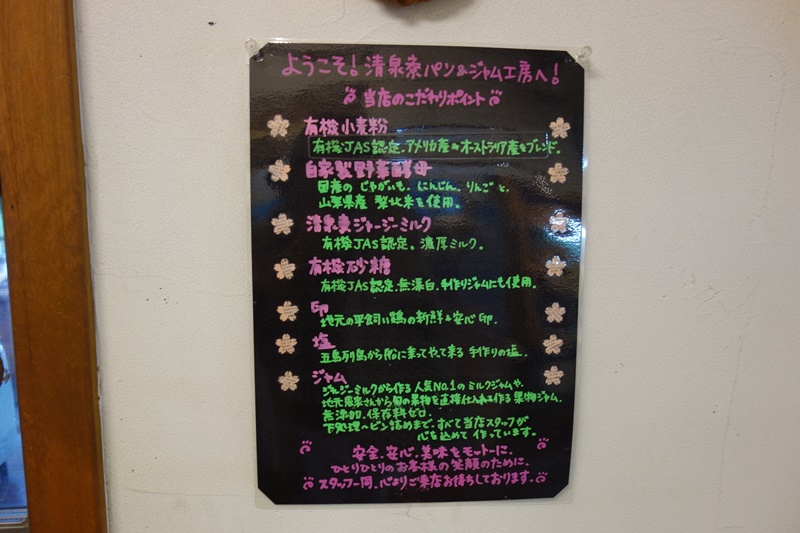 ようこそ!清泉寮パン&ジャム工房へ!
当店のこだわりポイント
有機小麦粉
有機JAS認定.アメリカ産&オーストラリア産をブレンド。
自家製野菜酵母
国産の じゃがいも. にんじん. りんご と.
山梨県産 梨北米を使用。
清泉寮ジャージーミルク
有機JAS認定。濃厚ミルク。
有機砂糖
有機JAS認定.無漂白.手作りジャムにも使用。
卵
地元の平飼い鶏の新鮮&安心卵.
塩
五島列島から船に乗ってやって来る 手作りの塩.
ジャム
ジャージーミルクから作る 人気NO.1の ミルクジャムや.
地元農家さんから旬の果物を直接仕入れ作る 果物ジャム.
無添加.保存料ゼロ.
下処理〜ビン詰めまで.すべて当店スタッフが
心を込めて 作っています。
安全.安心.美味をモットーに.
ひとりひとりのお客様の笑顔のために.
スタッフ一同.心よりご来店お待ちしております.